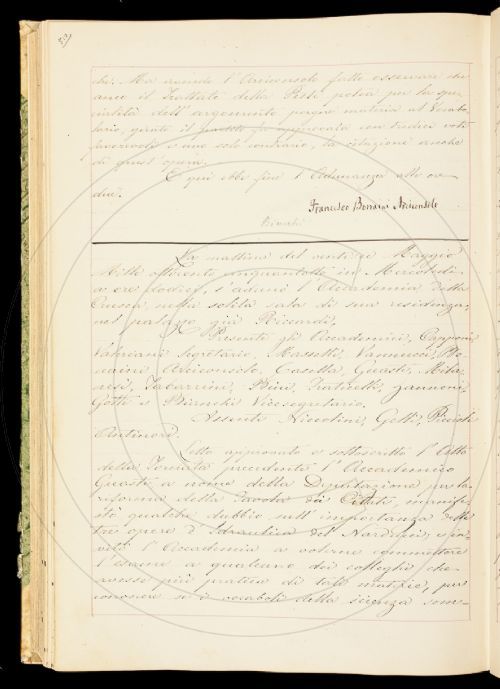 chi. Ma avendo l'Arciconsolo fatto osservare che
anco il Trattato della Peste potea per la spe-
cialità dell'argomento porger materia al Vocabo-
lario, quinto il partito fu approvata con tredici voti
favorevoli e uno solo contrario, la citazione anche
di quest'opera.
E qui ebbe fine l'Adunanza alle ore
due.
Francesco Bonaini Arciconsolo
Bianchi
La mattina del ventisei Maggio
Mille ottocento cinquantotto in Mercoledì
a ore dodici, s'adunò l'Accademia della
Crusca, nella solita sala di sua residenza,
nel palazzo già Riccardi.
Presenti gli Accademici, Capponi
Valeriani Segretario, Massetti, Vannucci, Bo-
naini Arciconsolo, Casella, Guasti, Mila-
nesi, Tabarrini, Bini, Fraticelli, Zannoni,
Gotti e Bianchi Vicesegretario.
Assenti Niccolini, Gelli,
Antinori.
Letto approvato e sottoscritto l'Atto
della Tornata precedente l'Accademico
Guasti a nome della Deputazione per la
riforma della Tavola dei Citati, manife-
stò qualche dubbio sull'importanza delle
tre opere d'Idraulica del Narducci, e in-
vitò l'Accademia a volerne commettere
l'esame a qualcuno dei colleghi che
avesse più pratica di tali materie, per
conoscere se i vocaboli della scienza